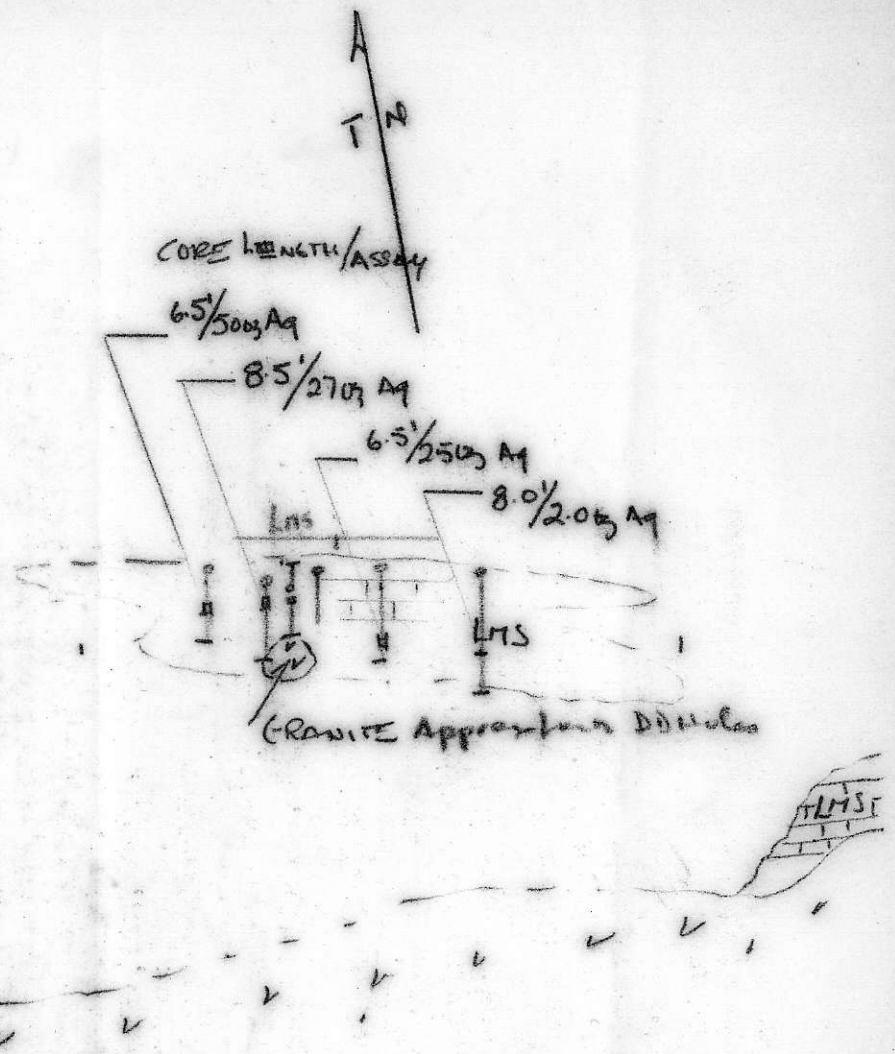 T N
CORE LENGTH/ASSAY
6.5'/50oz Ag
8.5'/27oz Ag
6.5'/25oz Ag
8.0'/2.0oz Ag
LMS
LMS
GRANITE
LMS